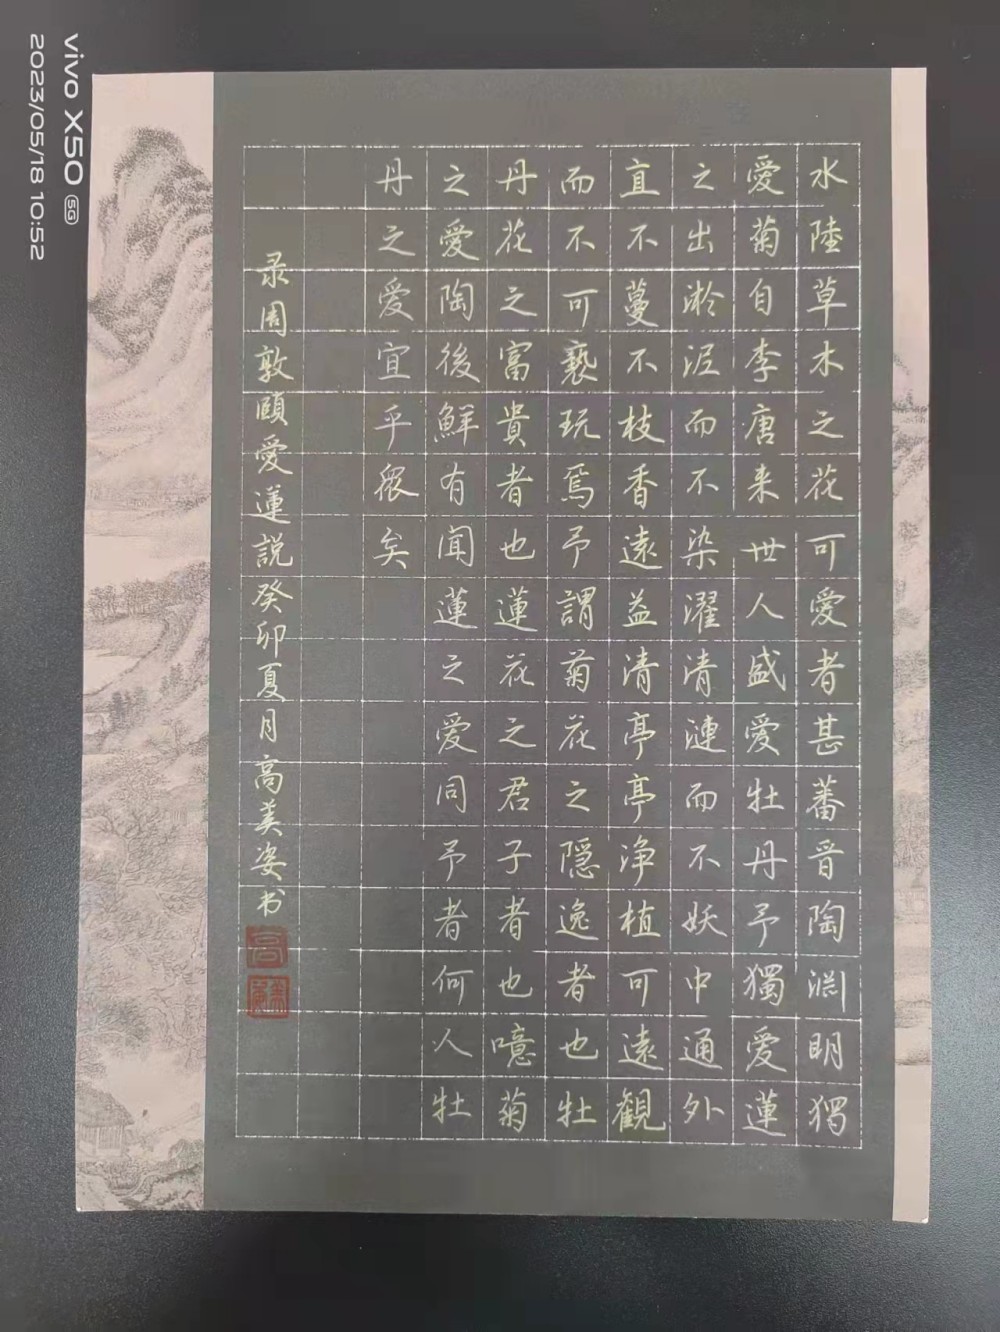 水陸草木之花可愛者甚蕃晋陶渊明独
愛菊自李唐来世人盛爱牡丹予獨愛蓮
之出淤泥而不染濯清漣而不妖中通外
直不蔓不枝香遠益清亭亭净植可遠観
而不可褻玩焉予謂菊花之隐逸者也牡
丹花之富貴者也蓮花之君子者也噫菊
之愛陶後鮮有闻蓮之爱同予者何人牡
丹之爱宜乎眾矣
录周敦颐愛蓮説癸卯夏月高美姿书
vivo X50 5G
2023/05/18 10:52